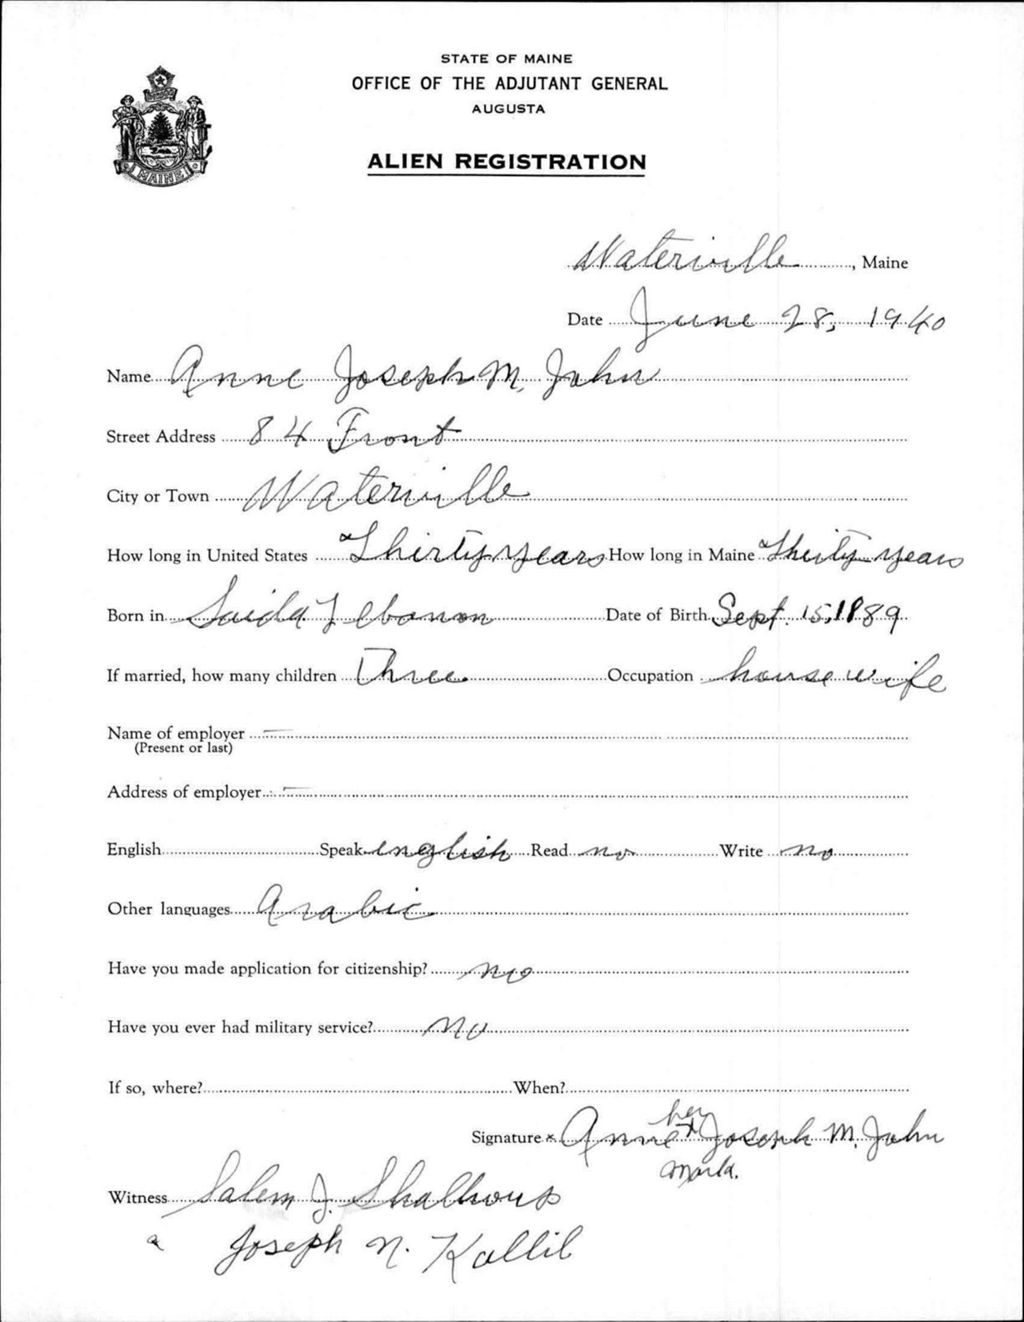 STATE OF MAINE
OFFICE OF THE ADJUTANT GENERAL
AUGUSTA
ALIEN REGISTRATION
MAINE
Waterville, Maine
Date June 28, 1940
Name Anne Joseph M. John
Street Address 84 Front
City or Town Waterville
How long in United States Thirty years How long in Maine Thirty years
Born in Saida Lebanon Date of Birth Sept. 15, 1889
If married, how many children Three Occupation housewife
Name of employer —
(Present or last)
Address of employer —
English Speak english Read no Write no
Other languages Arabic
Have you made application for citizenship? no
Have you ever had military service? no
If so, where? When?
her
Signature x Anne x Joseph M. John
mark.
Witness Salem J. Shalhoup
Joseph N. Kallil